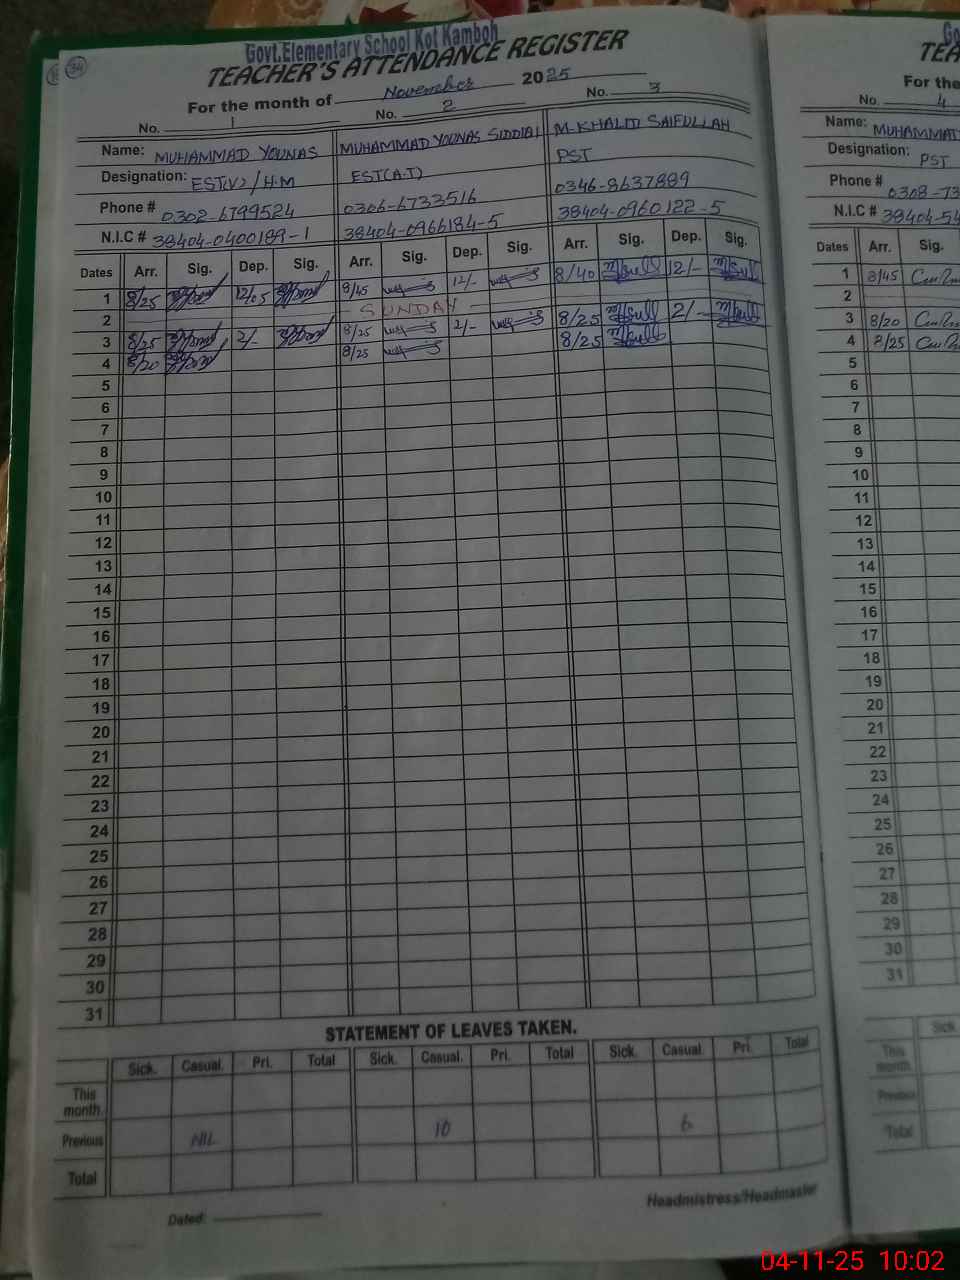 34
Govt.Elementary School Kot Kamboh
TEACHER'S ATTENDANCE REGISTER
For the month of November 2025
No. 1 No. 2 No. 3
Name: MUHAMMAD YOUNAS MUHAMMAD YOUNAS SIDDIQI M.KHALID SAIFULLAH
Designation: EST(V)/H.M EST(A.T) PST
Phone # 0302-6799524 0306-6733516 0346-8637889
N.I.C # 38404-0400189-1 38404-0966184-5 38404-0960122-5
Dates Arr. Sig. Dep. Sig. Arr. Sig. Dep. Sig. Arr. Sig. Dep. Sig.
1 8/25 12/05 8/45 12/- 8/40 12/-
2 SUNDAY
3 8/25 2/- 8/25 2/- 8/25 2/-
4 8/20 8/25 8/25
5
6
7
8
9
10
11
12
13
14
15
16
17
18
19
20
21
22
23
24
25
26
27
28
29
30
31
STATEMENT OF LEAVES TAKEN.
Sick. Casual. Pri. Total Sick. Casual. Pri. Total Sick. Casual. Pri. Total
This month.
Previous NIL 10 6
Total
Dated:
Headmistress/Headmaster
Go
TEA
For the
No. 4
Name: MUHAMMAD
Designation: PST
Phone # 0308-73
N.I.C # 38404-54
Dates Arr. Sig.
1 8/45
2
3 8/20
4 8/25
5
6
7
8
9
10
11
12
13
14
15
16
17
18
19
20
21
22
23
24
25
26
27
28
29
30
31
Sick.
This month.
Previous
Total
04-11-25 10:02